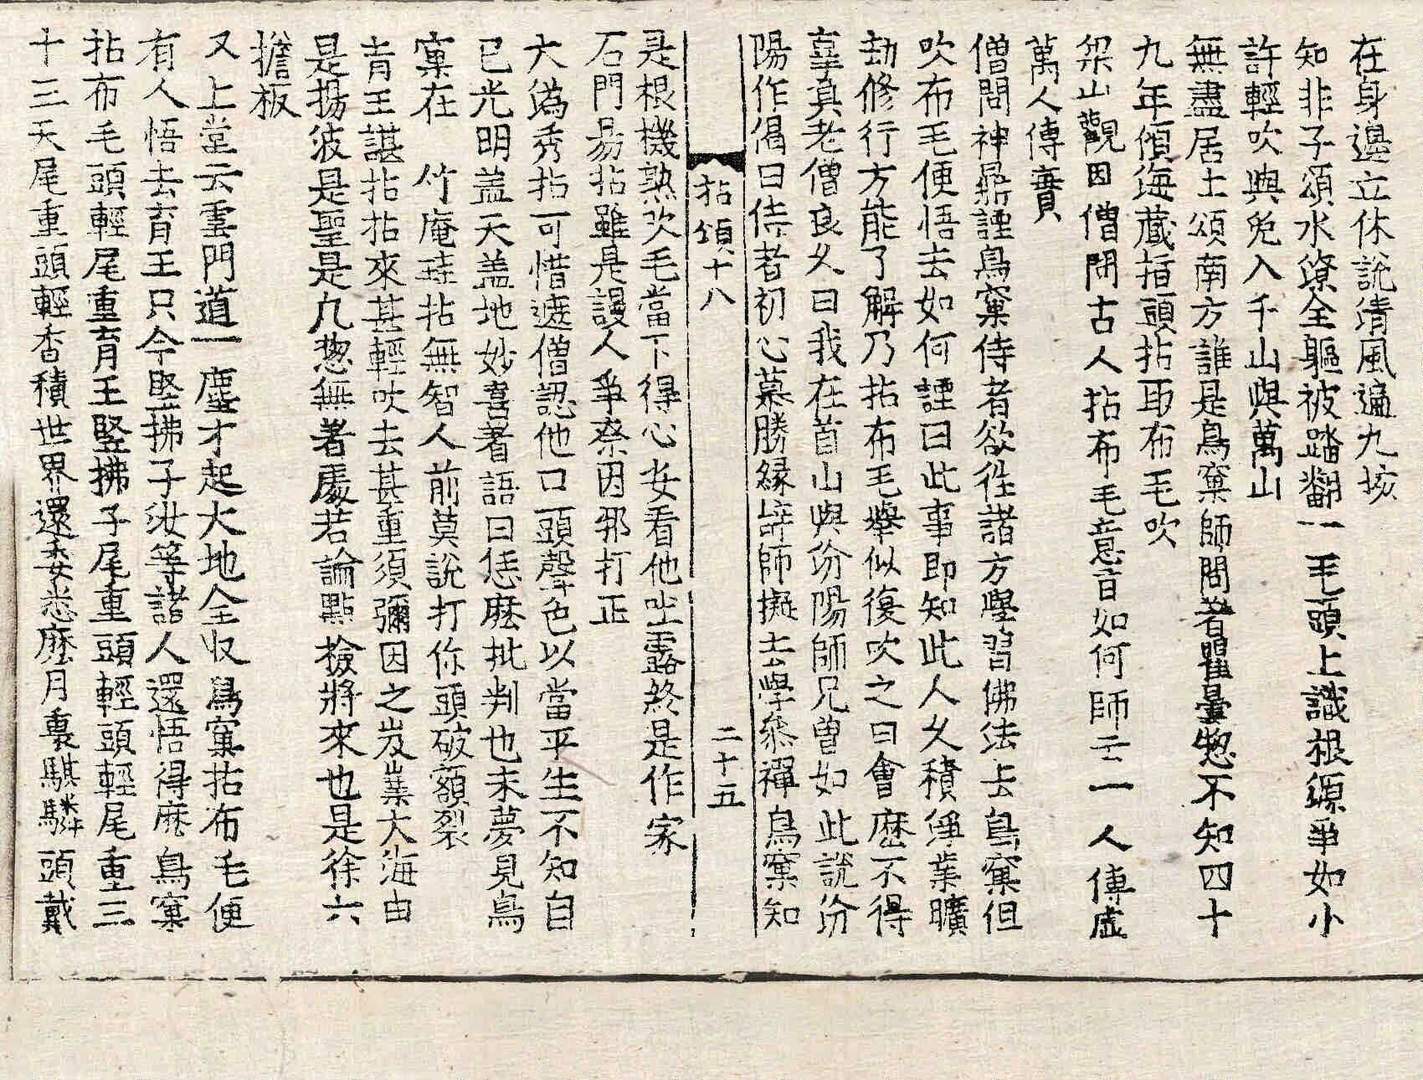 在身邊立休說淸風遍九垓
知非子頌水潦全軀被踏翻一毛頭上識根源爭如小
許輕吹與免入千山與萬山
無盡居士頌南方誰是鳥窠師問著瞿曇惣不知四十
九年傾海藏指頭拈取布毛吹
梁山觀因僧問古人拈布毛意旨如何師云一人傳虛
萬人傳實
僧問神鼎諲鳥窠侍者欲徃諸方學習佛法去鳥窠但
吹布毛便悟去如何諲曰此事即知此人久積淨業曠
劫修行方能了解乃拈布毛擧似復吹之曰會麽不得
辜眞老僧良久曰我在首山與汾陽師兄曽如此說汾
陽作偈曰侍者初心慕勝緣辝師擬去學叅禪鳥窠知
拈頌十八
二十五
是根機熟吹毛當下得心安看他吐露終是作家
石門易拈雖是謾人爭奈因邪打正
大潙秀拈可惜遮僧認他口頭聲色以當平生不知自
己光明盖天盖地妙喜著語曰恁麽批判也未夢見鳥
窠在　竹庵珪拈無智人前莫說打你頭破額裂
育王諶拈拈來甚輕吹去甚重須彌因之岌嶪大海由
是揚波是聖是凡惣無著處若論點檢將來也是徐六
擔板
又上堂云雲門道一塵才起大地全収鳥窠拈布毛便
有人悟去育王只今竪拂子汝等諸人還悟得麽鳥窠
拈布毛頭輕尾重育王竪拂子尾重頭輕頭輕尾重三
十三天尾重頭輕香積世界還委悉麽月裏騏驎頭戴